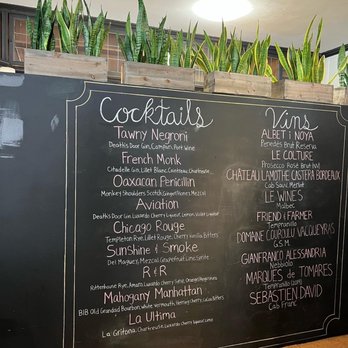 Cocktails
Tawny Negroni
Death's Door Gin, Campari, Port Wine
French Monk
Citadelle Gin, Lillet Blanc, Cointreau, Chartreuse
Oaxacan Penicillin
Monkey Shoulders Scotch, Ginger, Honey, Mezcal
Aviation
Death's Door Gin, Luxardo Cherry Liqueur, Lemon, Violet Liqueur
Chicago Rouge
Templeton Rye, Lillet Rouge, Cherry Vanilla Bitters
Sunshine & Smoke
Del Maguey, Mezcal, Grapefruit, Lime, Sprite
R & R
Rittenhouse Rye, Amaro, Luxardo Cherry
Mahogany Manhattan
BIB Old Grandad Bourbon, white vermouth, Herring cherry, Cacao Bitters
La Ultima
La Gritona, Chartreuse, Luxardo cherry liqueur, Lime
Vins
ALBET i NOYA
Penedes Brut Reserva
LE COLTURE
Prosecco Rosé Brut (NV)
CHÂTEAU LAMOTHE CISTERA BORDEAUX
Cab Sauv, Merlot
LE WINES
Malbec
FRIEND & FARMER
Tempranillo
DOMAINE COUROULU VACQUEYRAS
G.S.M.
GIANFRANCO ALESSANDRIA
Nebbiolo
MARQUES de TOMARES
Tempranillo
SEBASTIEN DAVID
Cab Franc